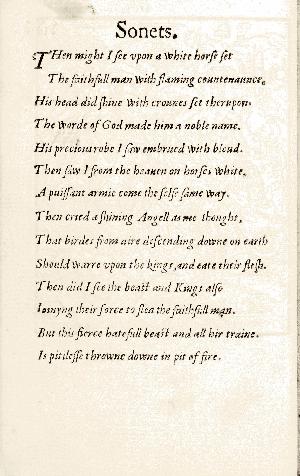 Sonets.
THen might I ſee vpon a white horſe ſet
The faithfull man with flaming countenaunce,
His head did ſhine with crounes ſet therupon.
The worde of God made him a noble name.
His precious robe I ſaw embrued with bloud.
Then ſaw I from the heauen on horſes white,
A puiſſant armie come the ſelfe ſame way.
Then cried a ſhining Angell as me thought,
That birdes from aire deſcending downe on earth
Should warre vpon the kings, and eate their fleſh.
Then did I ſee the beaſt and Kings alſo
Ioinyng their force to ſlea the faithfull man.
But this fierce hatefull beaſt and all hir traine,
Is pitileſſe throwne downe in pit of fire.